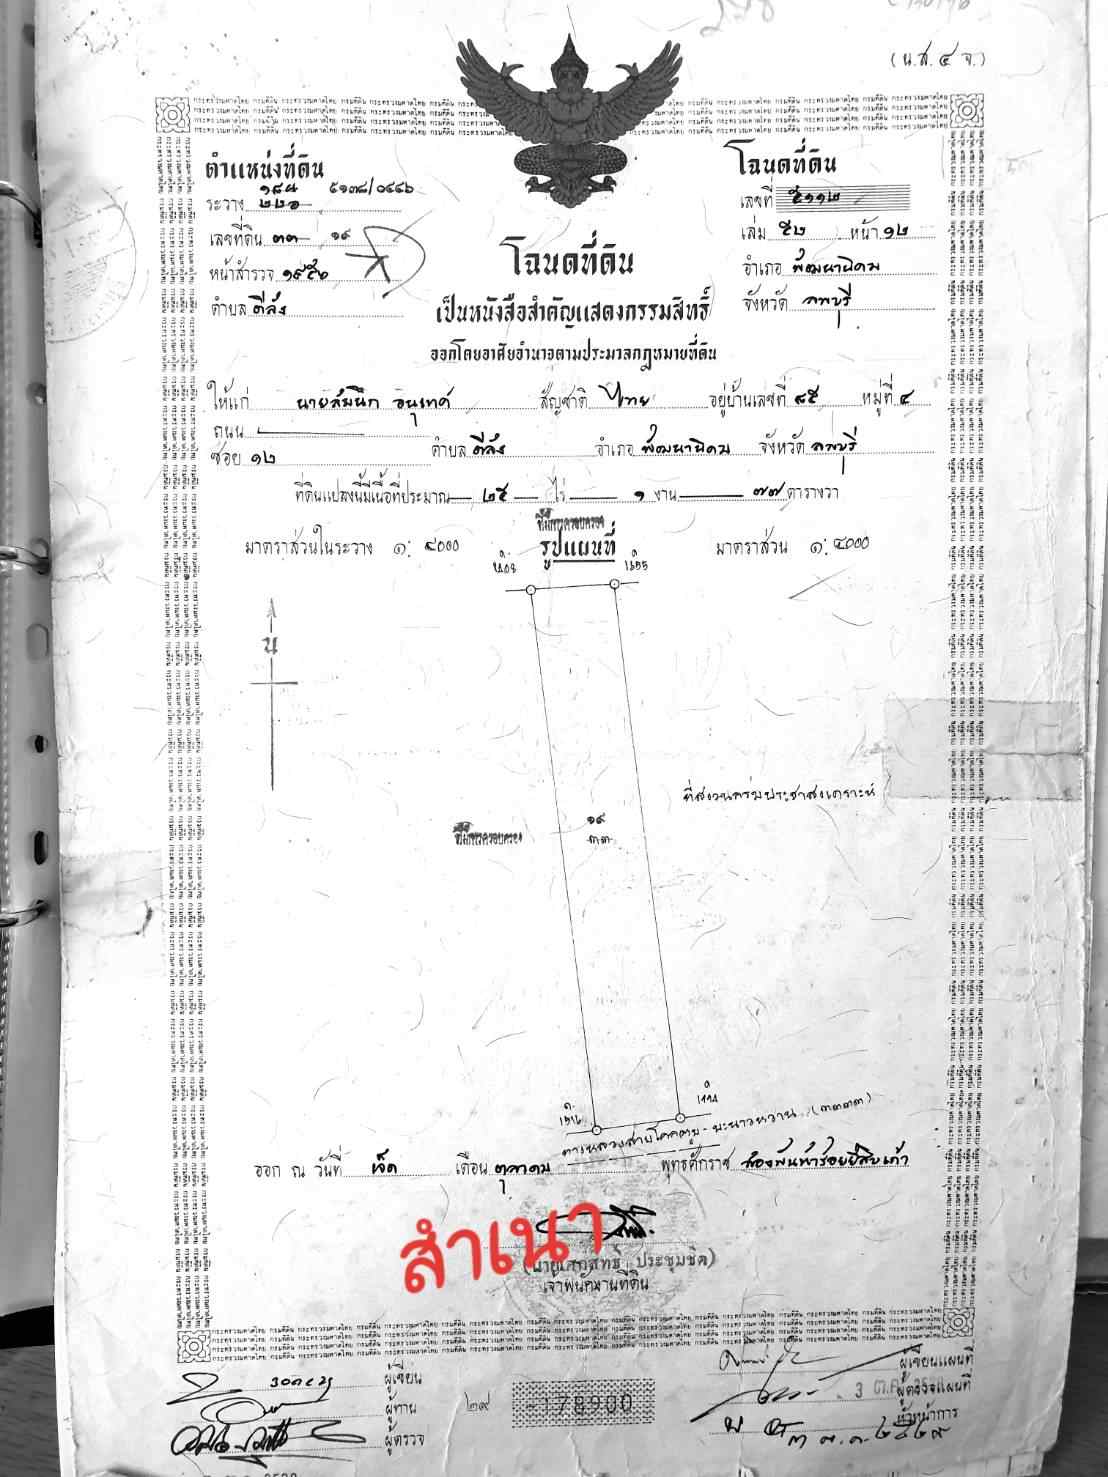 (น.ส. ๔ จ.)
ตำแหน่งที่ดิน
ระวาง ๒๒๖ ๕๑๓๘/๐๔๔๖
เลขที่ดิน ๓๓ ๑๙
หน้าสำรวจ
ตำบล ดีลัง
โฉนดที่ดิน
เลขที่ ๕๑๑๒
เล่ม ๕๒ หน้า ๑๒
อำเภอ พัฒนานิคม
จังหวัด ลพบุรี
โฉนดที่ดิน
เป็นหนังสือสำคัญแสดงกรรมสิทธิ์
ออกโดยอาศัยอำนาจตามประมวลกฎหมายที่ดิน
ให้แก่ นายสมนึก อินเทศ สัญชาติ ไทย อยู่บ้านเลขที่ ๘๕ หมู่ที่ ๔
ถนน
ซอย ๑๒ ตำบล ดีลัง อำเภอ พัฒนานิคม จังหวัด ลพบุรี
ที่ดินแปลงนี้มีเนื้อที่ประมาณ ๒๕ ไร่ ๑ งาน ๗๗ ตารางวา
ที่มีการครอบครอง
มาตราส่วนในระวาง ๑: ๔๐๐๐ รูปแผนที่ มาตราส่วน ๑: ๔๐๐๐
น
ที่สงวนกรมประชาสงเคราะห์
ที่มีการครอบครอง
๑๙
๓๓
ทางหลวงสายโคกตูม - มะนาวหวาน (๓๓๓๓)
ออก ณ วันที่ เจ็ด เดือน ตุลาคม พุทธศักราช สองพันห้าร้อยยี่สิบเก้า
สำเนา
ประชุมชิต)
เจ้าพนักงานที่ดิน
ผู้เขียน
ผู้ทาน
ผู้ตรวจ
๒๙ 178900
ผู้เขียนแผนที่
ผู้ตรวจแผนที่
หัวหน้าการ
๓ ต.ค. ๒๕๒๙